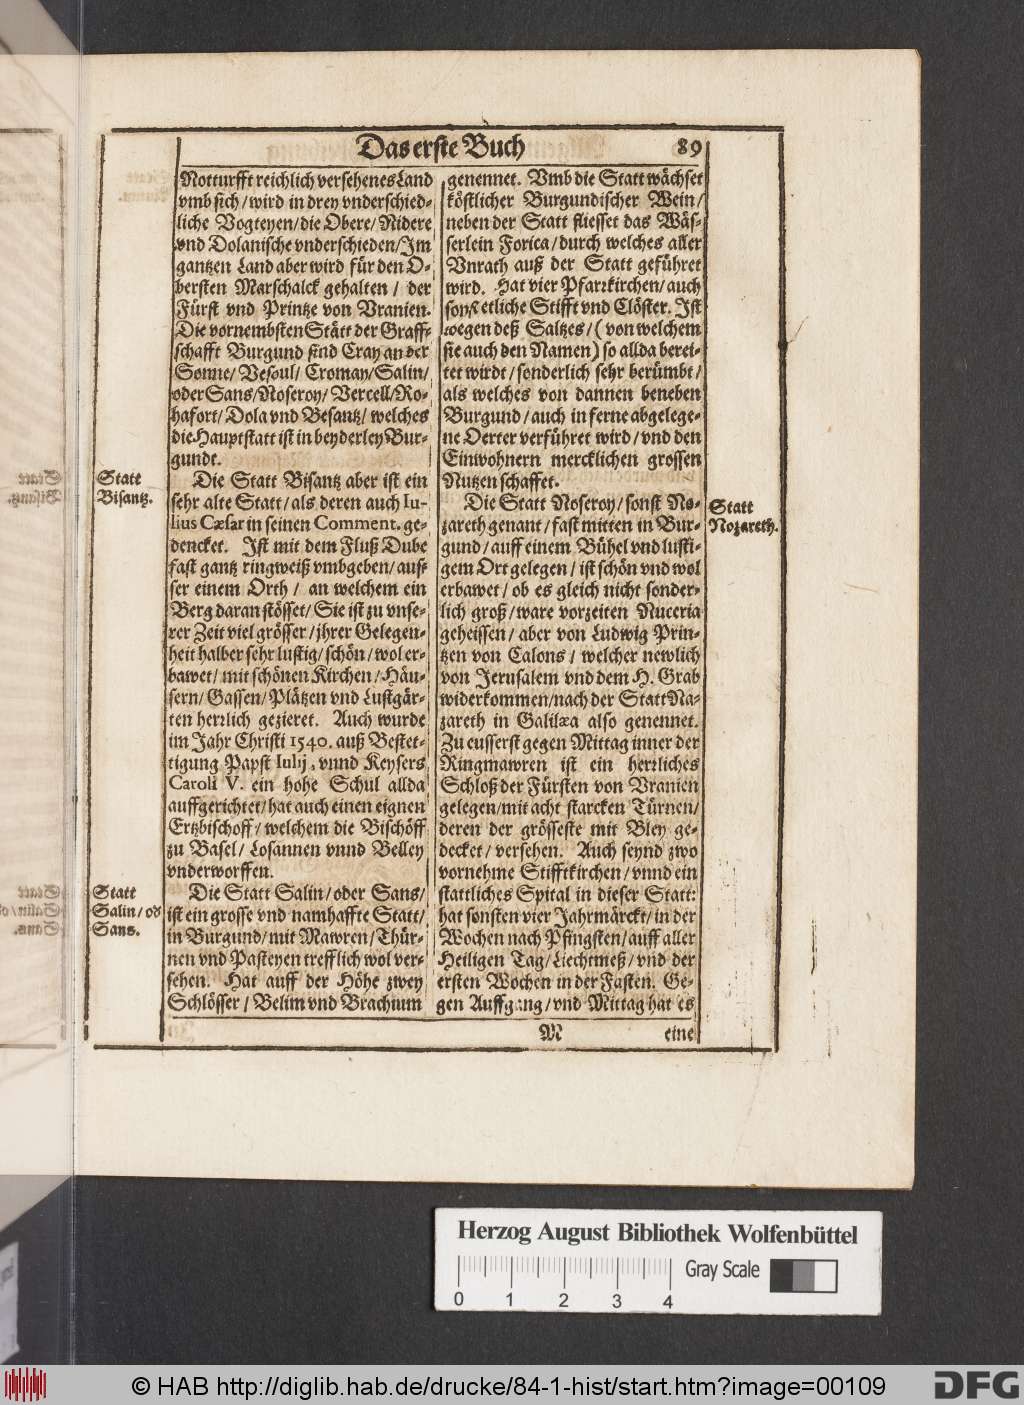 Das erste Buch
89
Notturfft reichlich versehenes Land
vmb sich / wird in drey vnderschied-
liche Vogteyen / die Obere / Nidere
vnd Dolanische vnderschieden / Im
gantzen Land aber wird für den O-
bersten Marschalck gehalten / der
Fürst vnd Printze von Vranien.
Die vornembsten Stätt der Graff-
schafft Burgund sind Cray an der
Sonne / Vesoul / Croman / Salin /
oder Sans / Noseroy / Vercell / Ro-
hafort / Dola vnd Besantz / welches
die Hauptstatt ist in beyderley Bur-
gundt.
Statt
Bisantz.
Die Statt Bisantz aber ist ein
sehr alte Statt / als deren auch Iu-
lius Cæsar in seinen Comment. ge-
dencket. Ist mit dem Fluß Dube
fast gantz ringweiß vmbgeben / auß-
ser einem Orth / an welchem ein
Berg daran stösset / Sie ist zu vnse-
rer Zeit viel grösser / jhrer Gelegen-
heit halber sehr lustig / schön / wol er-
bawet / mit schönen Kirchen / Häu-
sern / Gassen / Plätzen vnd Lustgär-
ten herrlich gezieret. Auch wurde
im Jahr Christi 1540. auß Bestet-
tigung Papst Iulij, vnnd Keysers
Caroli V. ein hohe Schul allda
auffgerichtet / hat auch einen eignen
Ertzbischoff / welchem die Bischöff
zu Basel / Losannen vnnd Belley
vnderworffen.
Statt
Salin / od
Sans.
Die Statt Salin / oder Sans /
ist ein grosse vnd namhaffte Statt /
in Burgund / mit Mawren / Thür-
nen vnd Pasteyen trefflich wol ver-
sehen. Hat auff der Höhe zwey
Schlösser / Belim vnd Brachium
genennet. Vmb die Statt wächset
köstlicher Burgundischer Wein /
neben der Statt fliesset das Wäs-
serlein Forica / durch welches aller
Vnrath auß der Statt geführet
wird. Hat vier Pfarrkirchen / auch
sonst etliche Stifft vnd Clöster. Ist
wegen deß Saltzes / ( von welchem
sie auch den Namen ) so allda berei-
tet wirdt / sonderlich sehr berümbt /
als welches von dannen beneben
Burgund / auch in ferne abgelege-
ne Oerter verführet wird / vnd den
Einwohnern mercklichen grossen
Nutzen schaffet.
Statt
Nozareth.
Die Statt Noseroy / sonst No-
zareth genant / fast mitten in Bur-
gund / auff einem Bühel vnd lusti-
gem Ort gelegen / ist schön vnd wol
erbawet / ob es gleich nicht sonder-
lich groß / ware vorzeiten Nuceria
geheissen / aber von Ludwig Prin-
tzen von Calons / welcher newlich
von Jerusalem vnd dem H. Grab
widerkommen / nach der Statt Na-
zareth in Galilæa also genennet.
Zu eusserst gegen Mittag inner der
Ringmawren ist ein herrliches
Schloß der Fürsten von Vranien
gelegen / mit acht starcken Türnen /
deren der grösseste mit Bley ge-
decket / versehen. Auch seynd zwo
vornehme Stifftkirchen / vnnd ein
stattliches Spital in dieser Statt:
hat sonsten vier Jahrmärckt / in der
Wochen nach Pfingsten / auff aller
Heiligen Tag / Liechtmeß / vnd der
ersten Wochen in der Fasten. Ge-
gen Auffgang / vnd Mittag hat es
M
eine
Herzog August Bibliothek Wolfenbüttel
Gray Scale
0 1 2 3 4
© HAB http://diglib.hab.de/drucke/84-1-hist/start.htm?image=00109
DFG